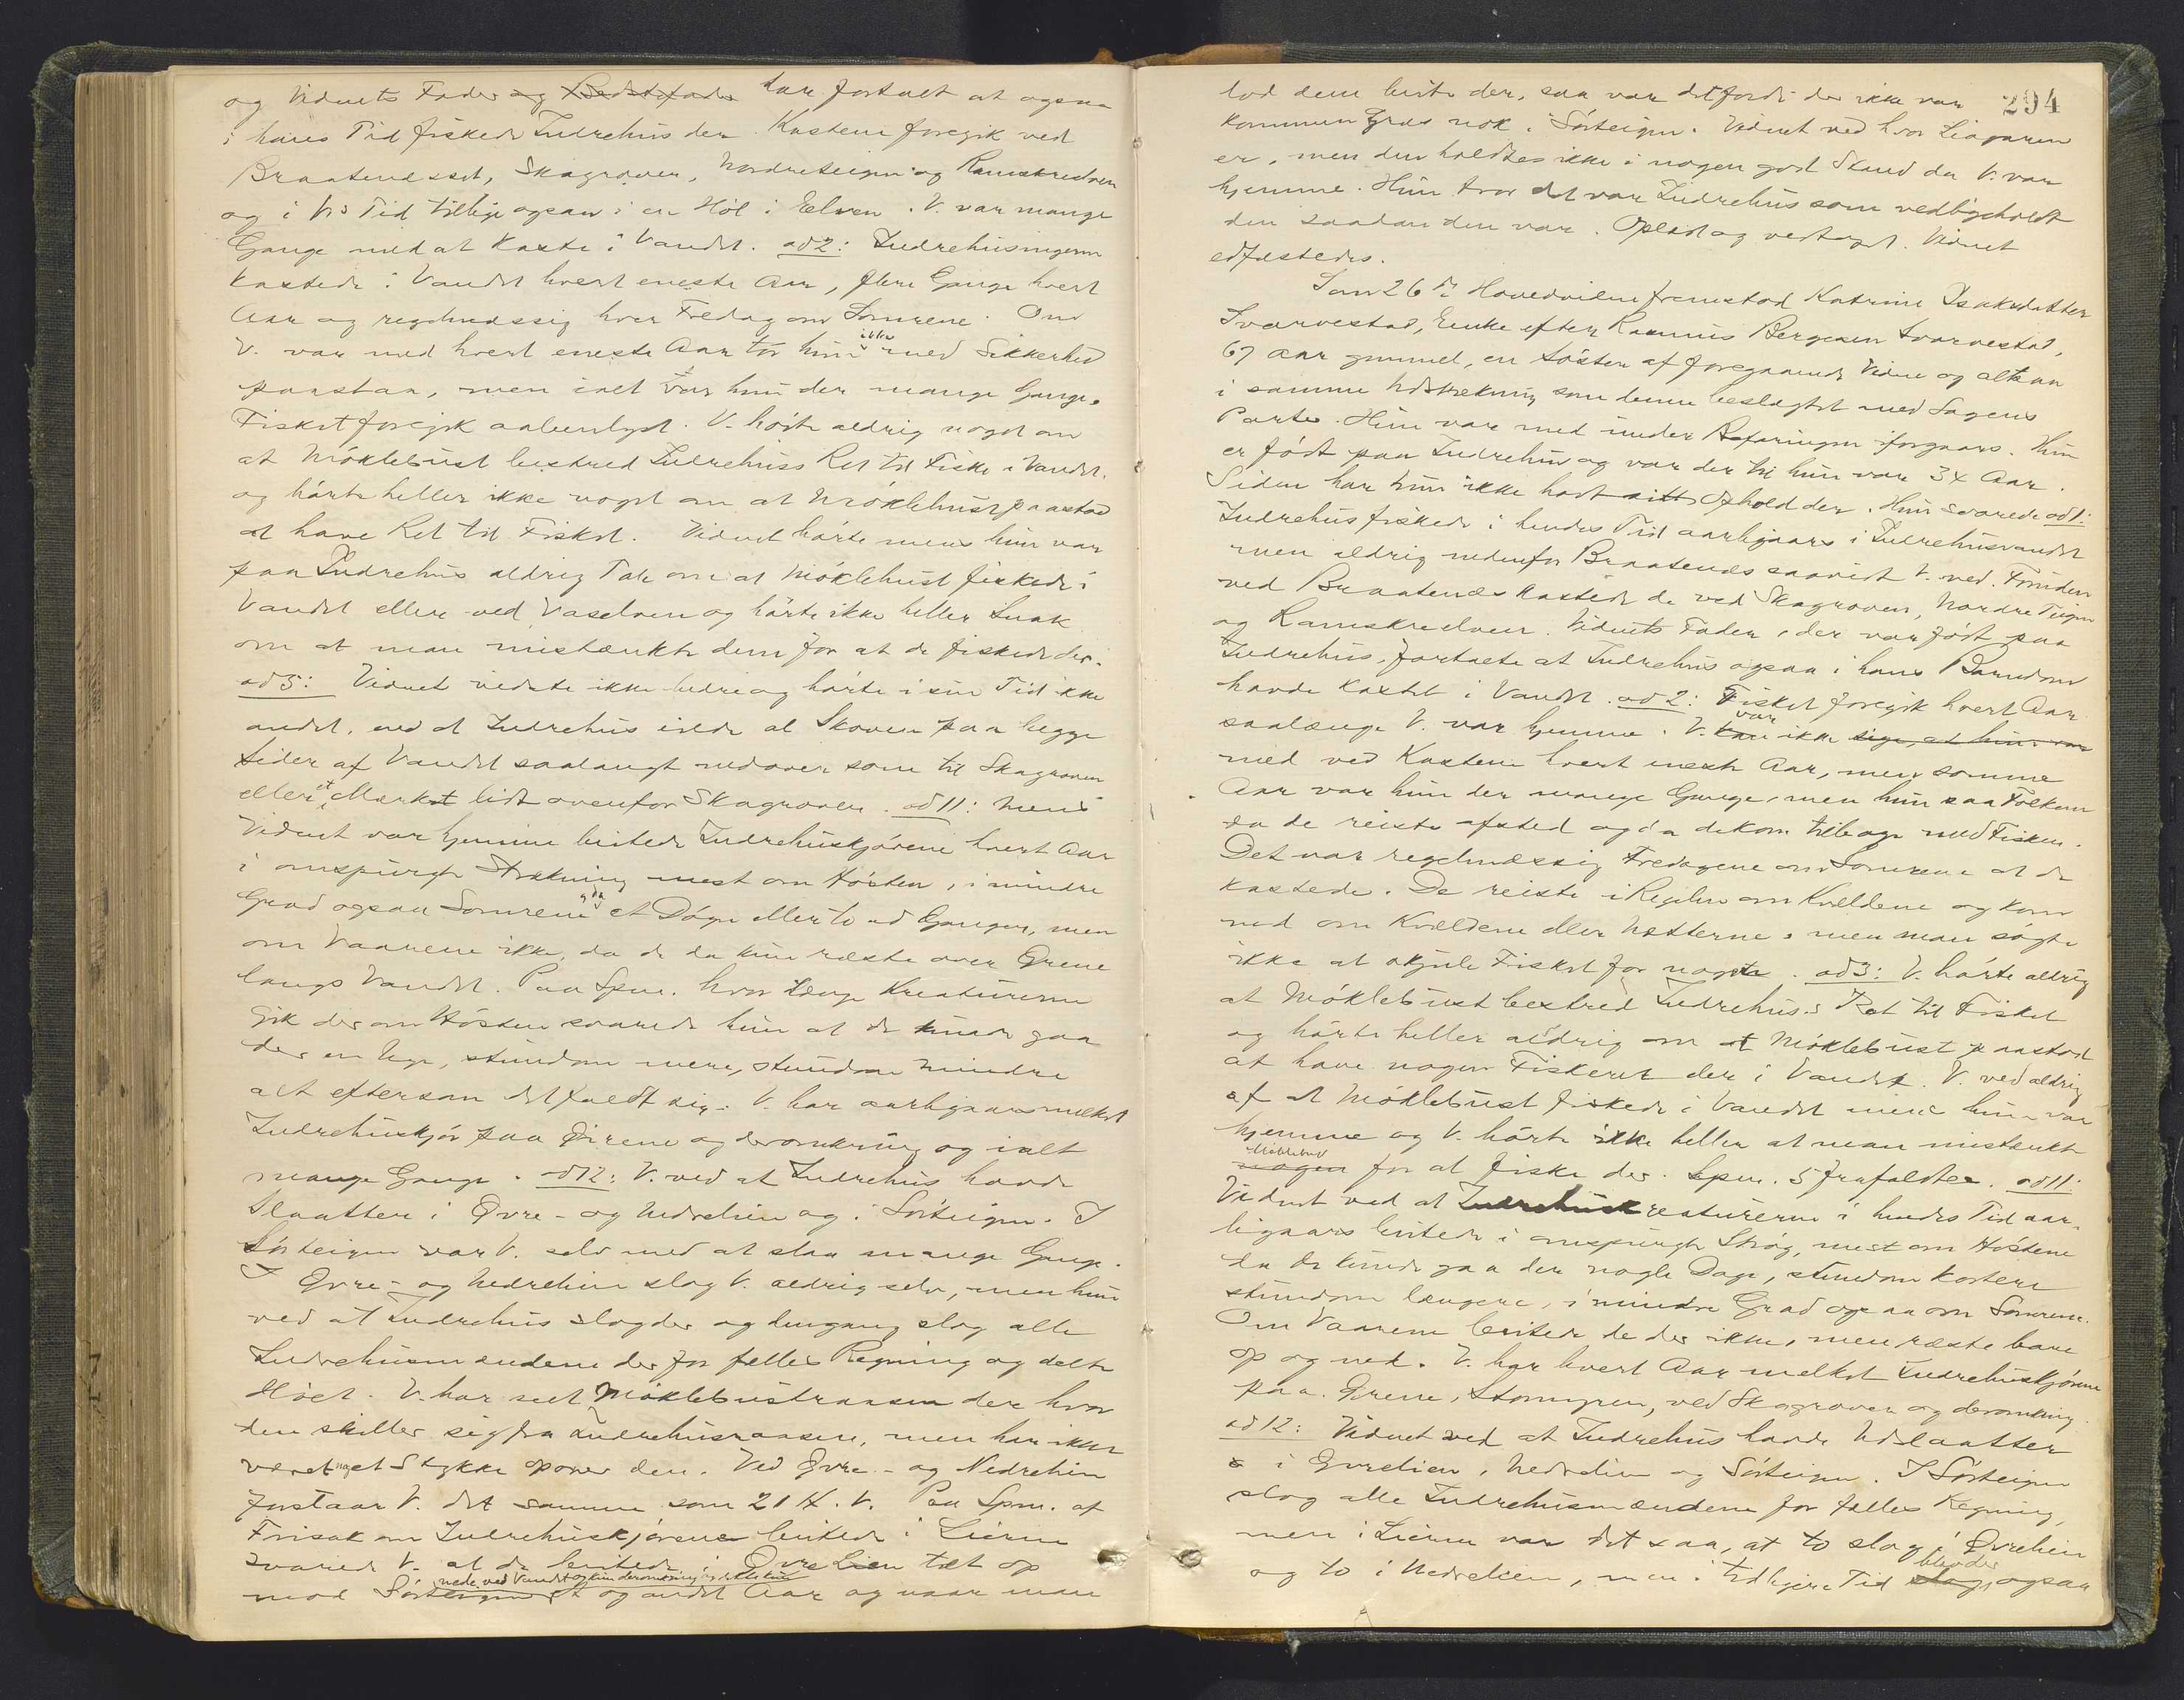 og Vidnets Fader og Bedstefader har fortalt at ogsaa
i hans Tid fiskede Indrehus der. Kastene foregik ved
Braatenesset, Skagroven, Nordreteigen og Ramskredven
og i Vs Tid tillige ogsaa i en Höl i Elven. V. var mange
Gange med at kaste i Vandet. ad 2: Indrehusingerne
kastede i Vandet hvert eneste Aar, flere Gange hvert
Aar og regelmæssig hver Fredag om Somrene. Om
V. var med hvert eneste Aar tör hun ikke med Sikkerhed
paastaa, men ialt var hun der mange Gange.
Fisket foregik aabenlyst. V. hörte aldrig noget om
at Möklebust bestred Indrehuss Ret til Fiske i Vandet,
og hörte heller ikke noget om at Möklebust paastod
at have Ret til Fisket. Vidnet hörte mens hun var
paa Indrehus aldrig Tale om at Möklebust fiskede i
Vandet eller ved Vaselven og hörte ikke heller Snak
om at man mistænkte dem for at de fiskede der.
ad 5: Vidnet vidste ikke bedre og hörte i sin Tid ikke
andet, end at Indrehus eiede al Skoven paa begge
Sider af Vandet saalangt nedover som til Skagroven
eller et Mærke lidt ovenfor Skagroven. ad 11: Mens
Vidnet var hjemme beitede Indrehuskjörene hvert Aar
i omspurgte Strekning mest om Hösten, i mindre
Grad ogsaa Somrene et Dögn eller to ad Gangen, men
om Vaarene ikke, da de da kun ræste over Ørene
langs Vandet. Paa Spm. hvor længe Kreaturerne
gik der om Hösten svarede hun at de kunde gaa
der en Uge, stundom mere, stundom mindre
alt eftersom det faldt sig. V. har aarligaars melket
Indrehuskjör paa Ørene og deromkring og ialt
mange Gange. ad 12: V. ved at Indrehus havde
Slaatter i Øvre- og Nedrelien og i Sörteigen. I
Sörteigen var V. selv med at slaa mange Gange.
I Øvre- og Nedrelien slog V. aldrig selv, men hun
ved at Indrehus slog der og dengang slog alle
Indrehusmændene der for felles Regning og delte
Höet. V. har seet Möklebustraasen der hvor
den skiller sig fra Indrehusraasen, men har ikke
været noget Stykke opover den. Ved Øvre- og Nedrelien
forstaar V. det samme som 21 H. V. Paa Spm. af
Frisak om Indrehuskjörene beitede i Lierne
svarede V. at de beitede i Øvrelien tæt op
nede ved Vandet og kun deromkring og ikke kun
mod Sörteigen et og andet Aar og naar man
294
lod dem beite der, saa var det fordi der ikke var
kommen Græs nok i Sörteigen. Vidnet ved hvor Liagaren
er, men den holdtes ikke i nogen god Stand da V. var
hjemme. Hun tror det var Indrehus som vedligeholdt
den saadan den var. Oplæst og vedtaget. Vidnet
edfæstedes.
Som 26de Hovedvidne fremstod Katrine Isaksdatter
Svarvestad, Enke efter Rasmus Bergesen Svarvestad,
67 Aar gammel, en Söster af foregaaende Vidne og altsaa
i samme Udstrekning som denne beslegtet med Sagens
Parter. Hun var med under Befaringen iforgaars. Hun
er födt paa Indrehus og var der til hun var 34 Aar.
Siden har hun ikke havt sitt Ophold der. Hun svarede ad 1:
Indrehus fiskede i hendes Tid aarligaars i Indrehusvandet
men aldrig nedenfor Braatenæs saavidt V. ved. Foruden
ved Braatenæs kastede de ved Skagroven, Nordre Teigen
og Ramskredveen. Vidnets Fader, der var födt paa
Indrehus, fortalte at Indrehus ogsaa i hans Barndom
havde kastet i Vandet. ad 2: Fisket foregik hvert Aar
saalænge V. var hjemme. V. kan var ikke sige, at hun var
med ved Kastene hvert eneste Aar, men somme
Aar var hun der mange Gange, men hun saa Folkene
da de reiste afsted og da de kom tilbage med Fisken.
Det var regelmæssig Fredagene om Somrene at de
kastede. De reiste i Regelen om Kveldene og kom
ned om Kveldene eller Nætterne, men man sögte
ikke at skjule Fisket for nogen. ad 3: V. hörte aldrig
at Möklebust bestred Indrehus's Ret til Fisket
og hörte heller aldrig om at Möklebust paastod
at have nogen Fiskeret der i Vandet. V. ved aldrig
af at Möklebust fiskede i Vandet mens hun var
hjemme og V. hörte ikke heller at man mistænkte
nogen Möklebust for at fiske der. Spm. 5 frafaldtes. ad 11:
Vidnet ved at Indrehuskreaturerne i hendes Tid aar-
ligaars beitede i omspurgte Strög, mest om Höstene
da de kunde gaa der nogle Dage, stundom kortere
stundom længere, i mindre Grad ogsaa om Somrene.
Om Vaarene beitede de der ikke, men ræste bare
op og ned. V. har hvert Aar melket Indrehuskjörene
paa Ørene, Stormyren, ved Skagroven og deromkring.
ad 12: Vidnet ved at Indrehus havde Udslaatter
i Øvrelien, Nedrelien og Sörteigen. I Sörteigen
slog alle Indrehusmændene for felles Regning,
men i Lierne var det saa, at to slog i Øvrelien
og to i Nedrelien, men i tidligere Tid slog blev der ogsaa